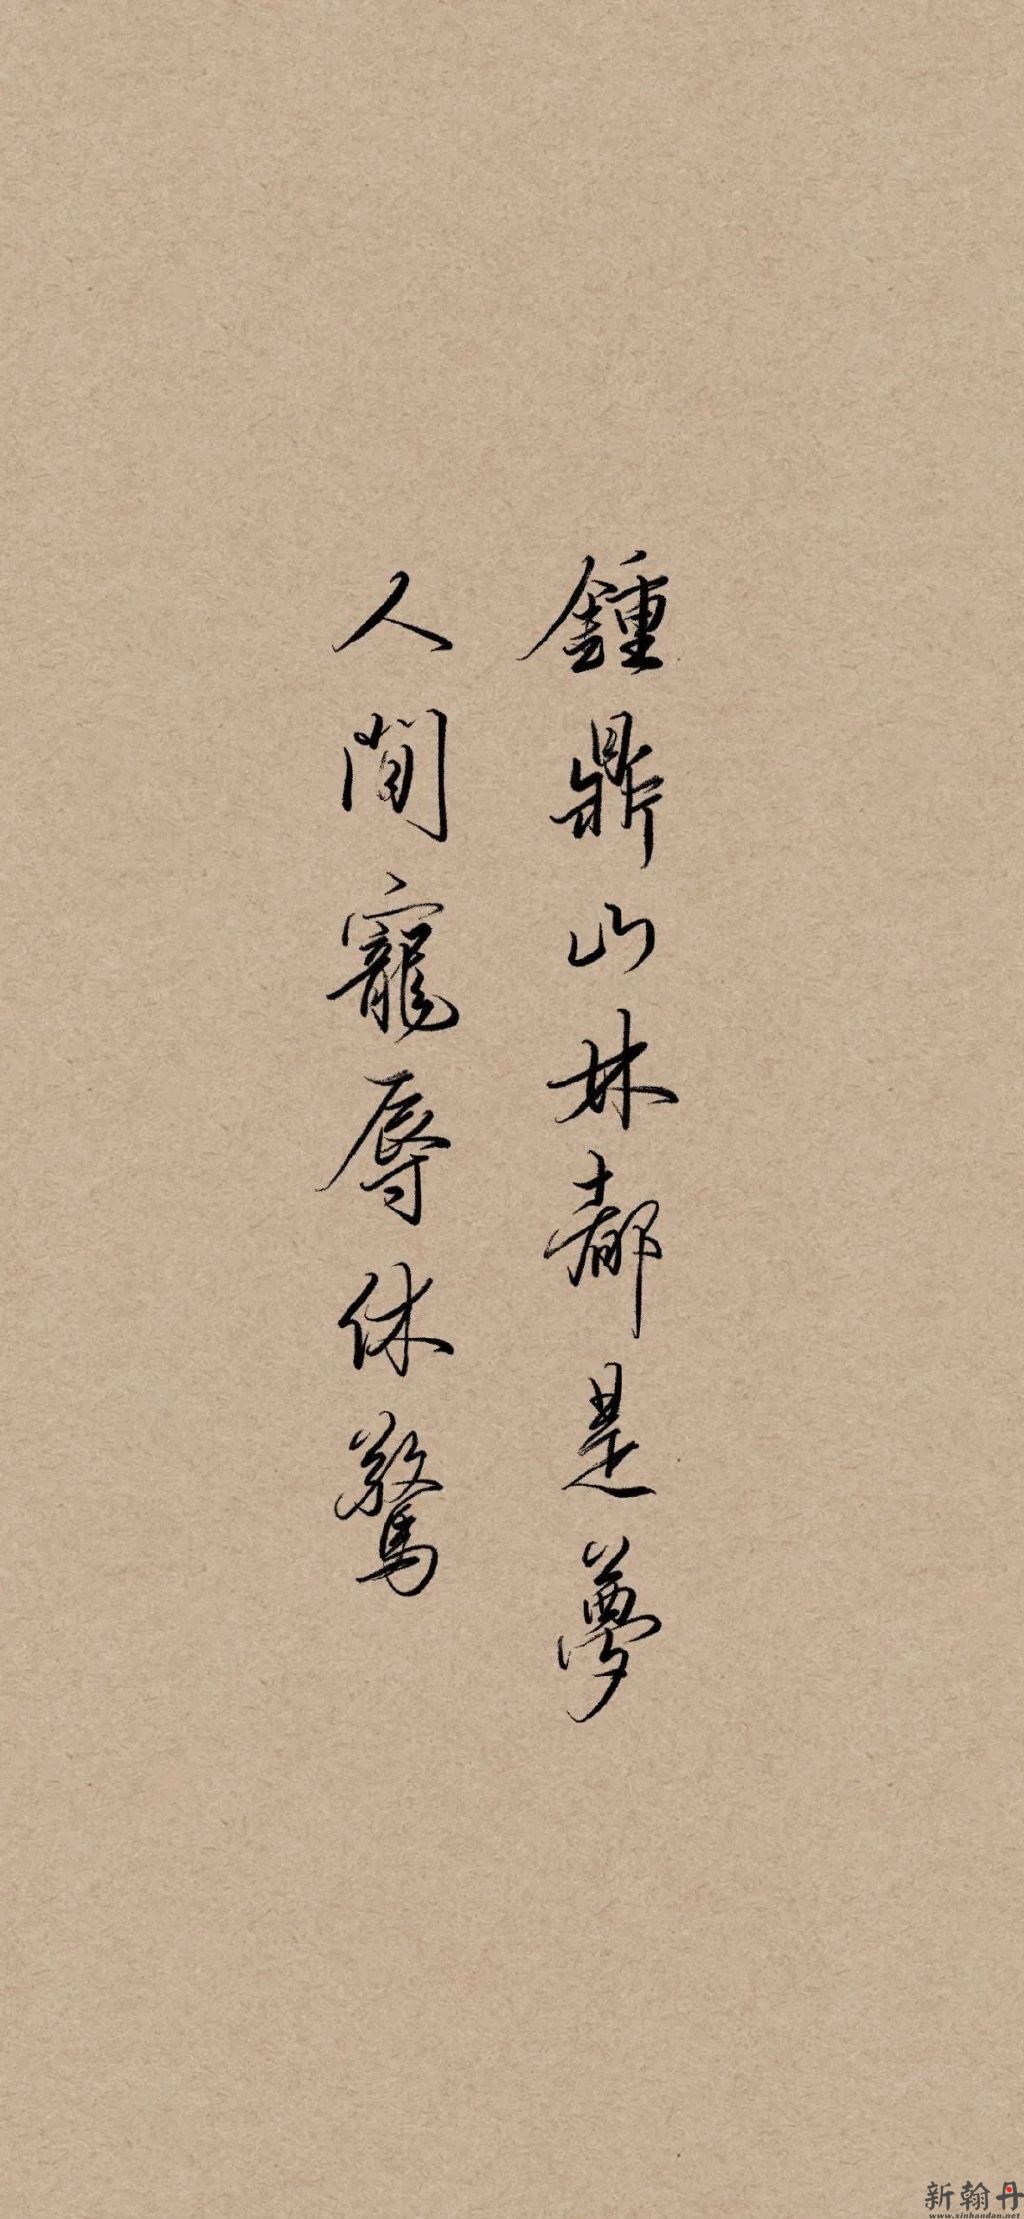 鍾鼎山林都是夢
人間寵辱休驚
新翰丹
www.xinhandan.net